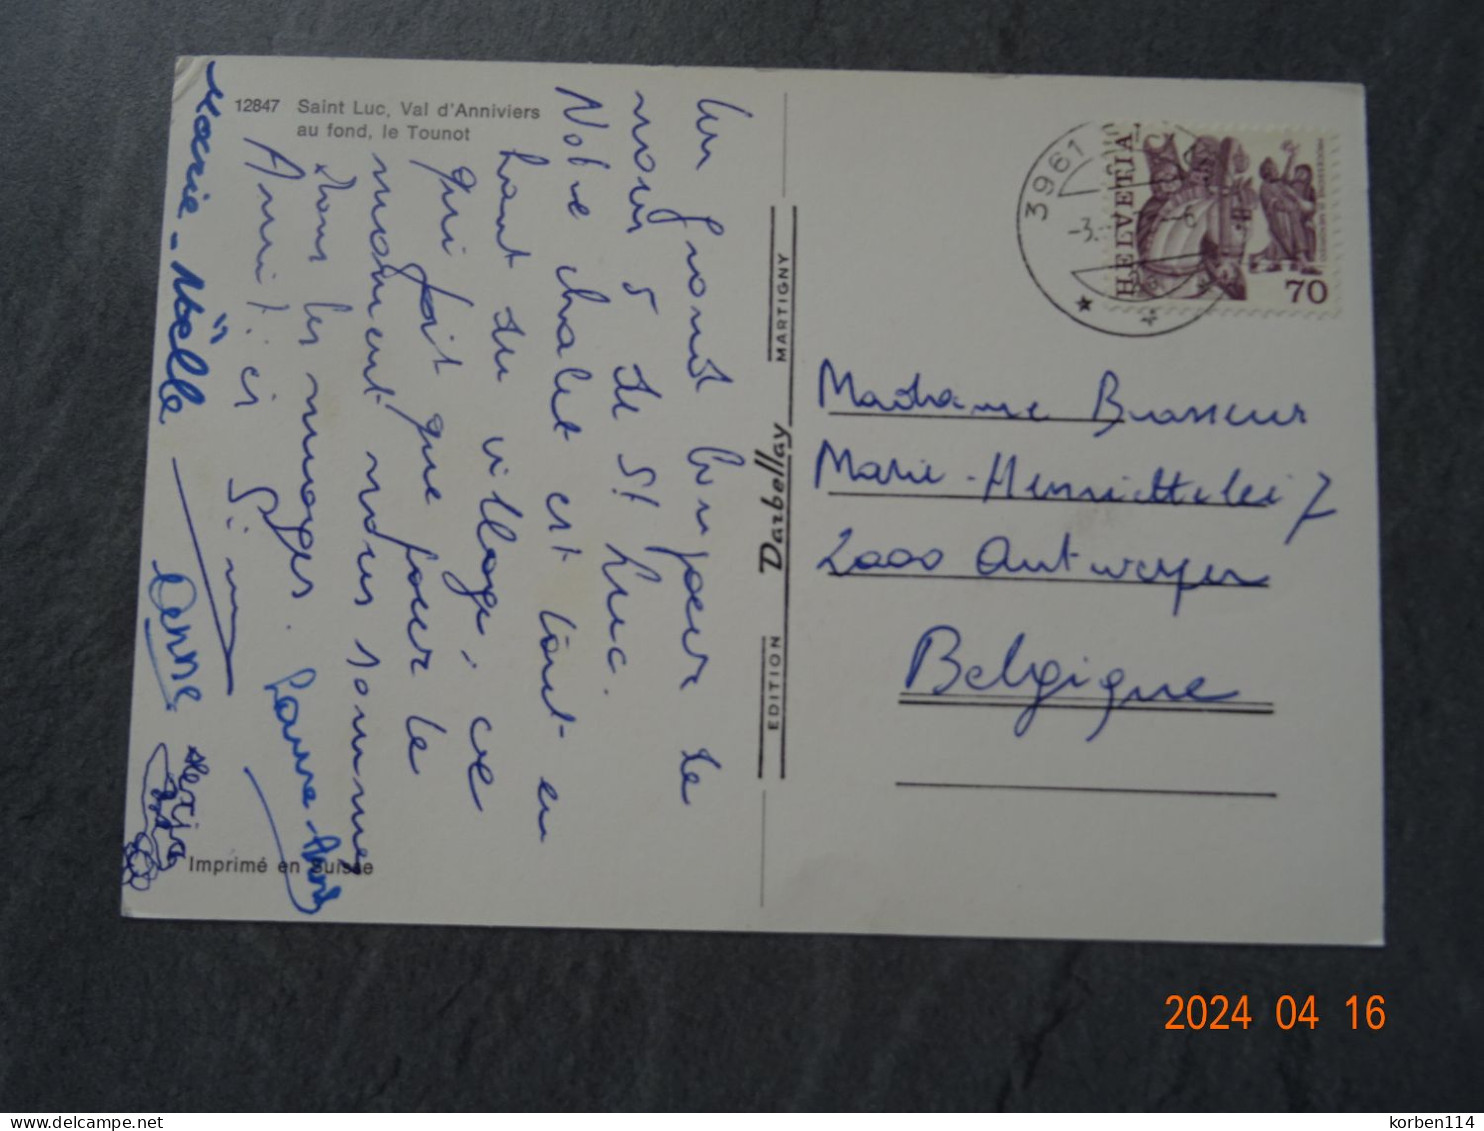 12847 Saint Luc, Val d'Anniviers
au fond, le Tounot
Un grand bonjour de
nous 5 de St Luc.
Notre chalet est tout en
haut du village, ce
qui fait que pour le
moment nous sommes
dans les nuages.
Amitiés
Marie-Noëlle
Anne
EDITION Darbellay MARTIGNY
Imprimé en Suisse
3961
-3.
HELVETIA
70
Madame Brasseur
Marie-Henriettelei 7
2000 Antwerpen
Belgique
2024 04 16
korben114